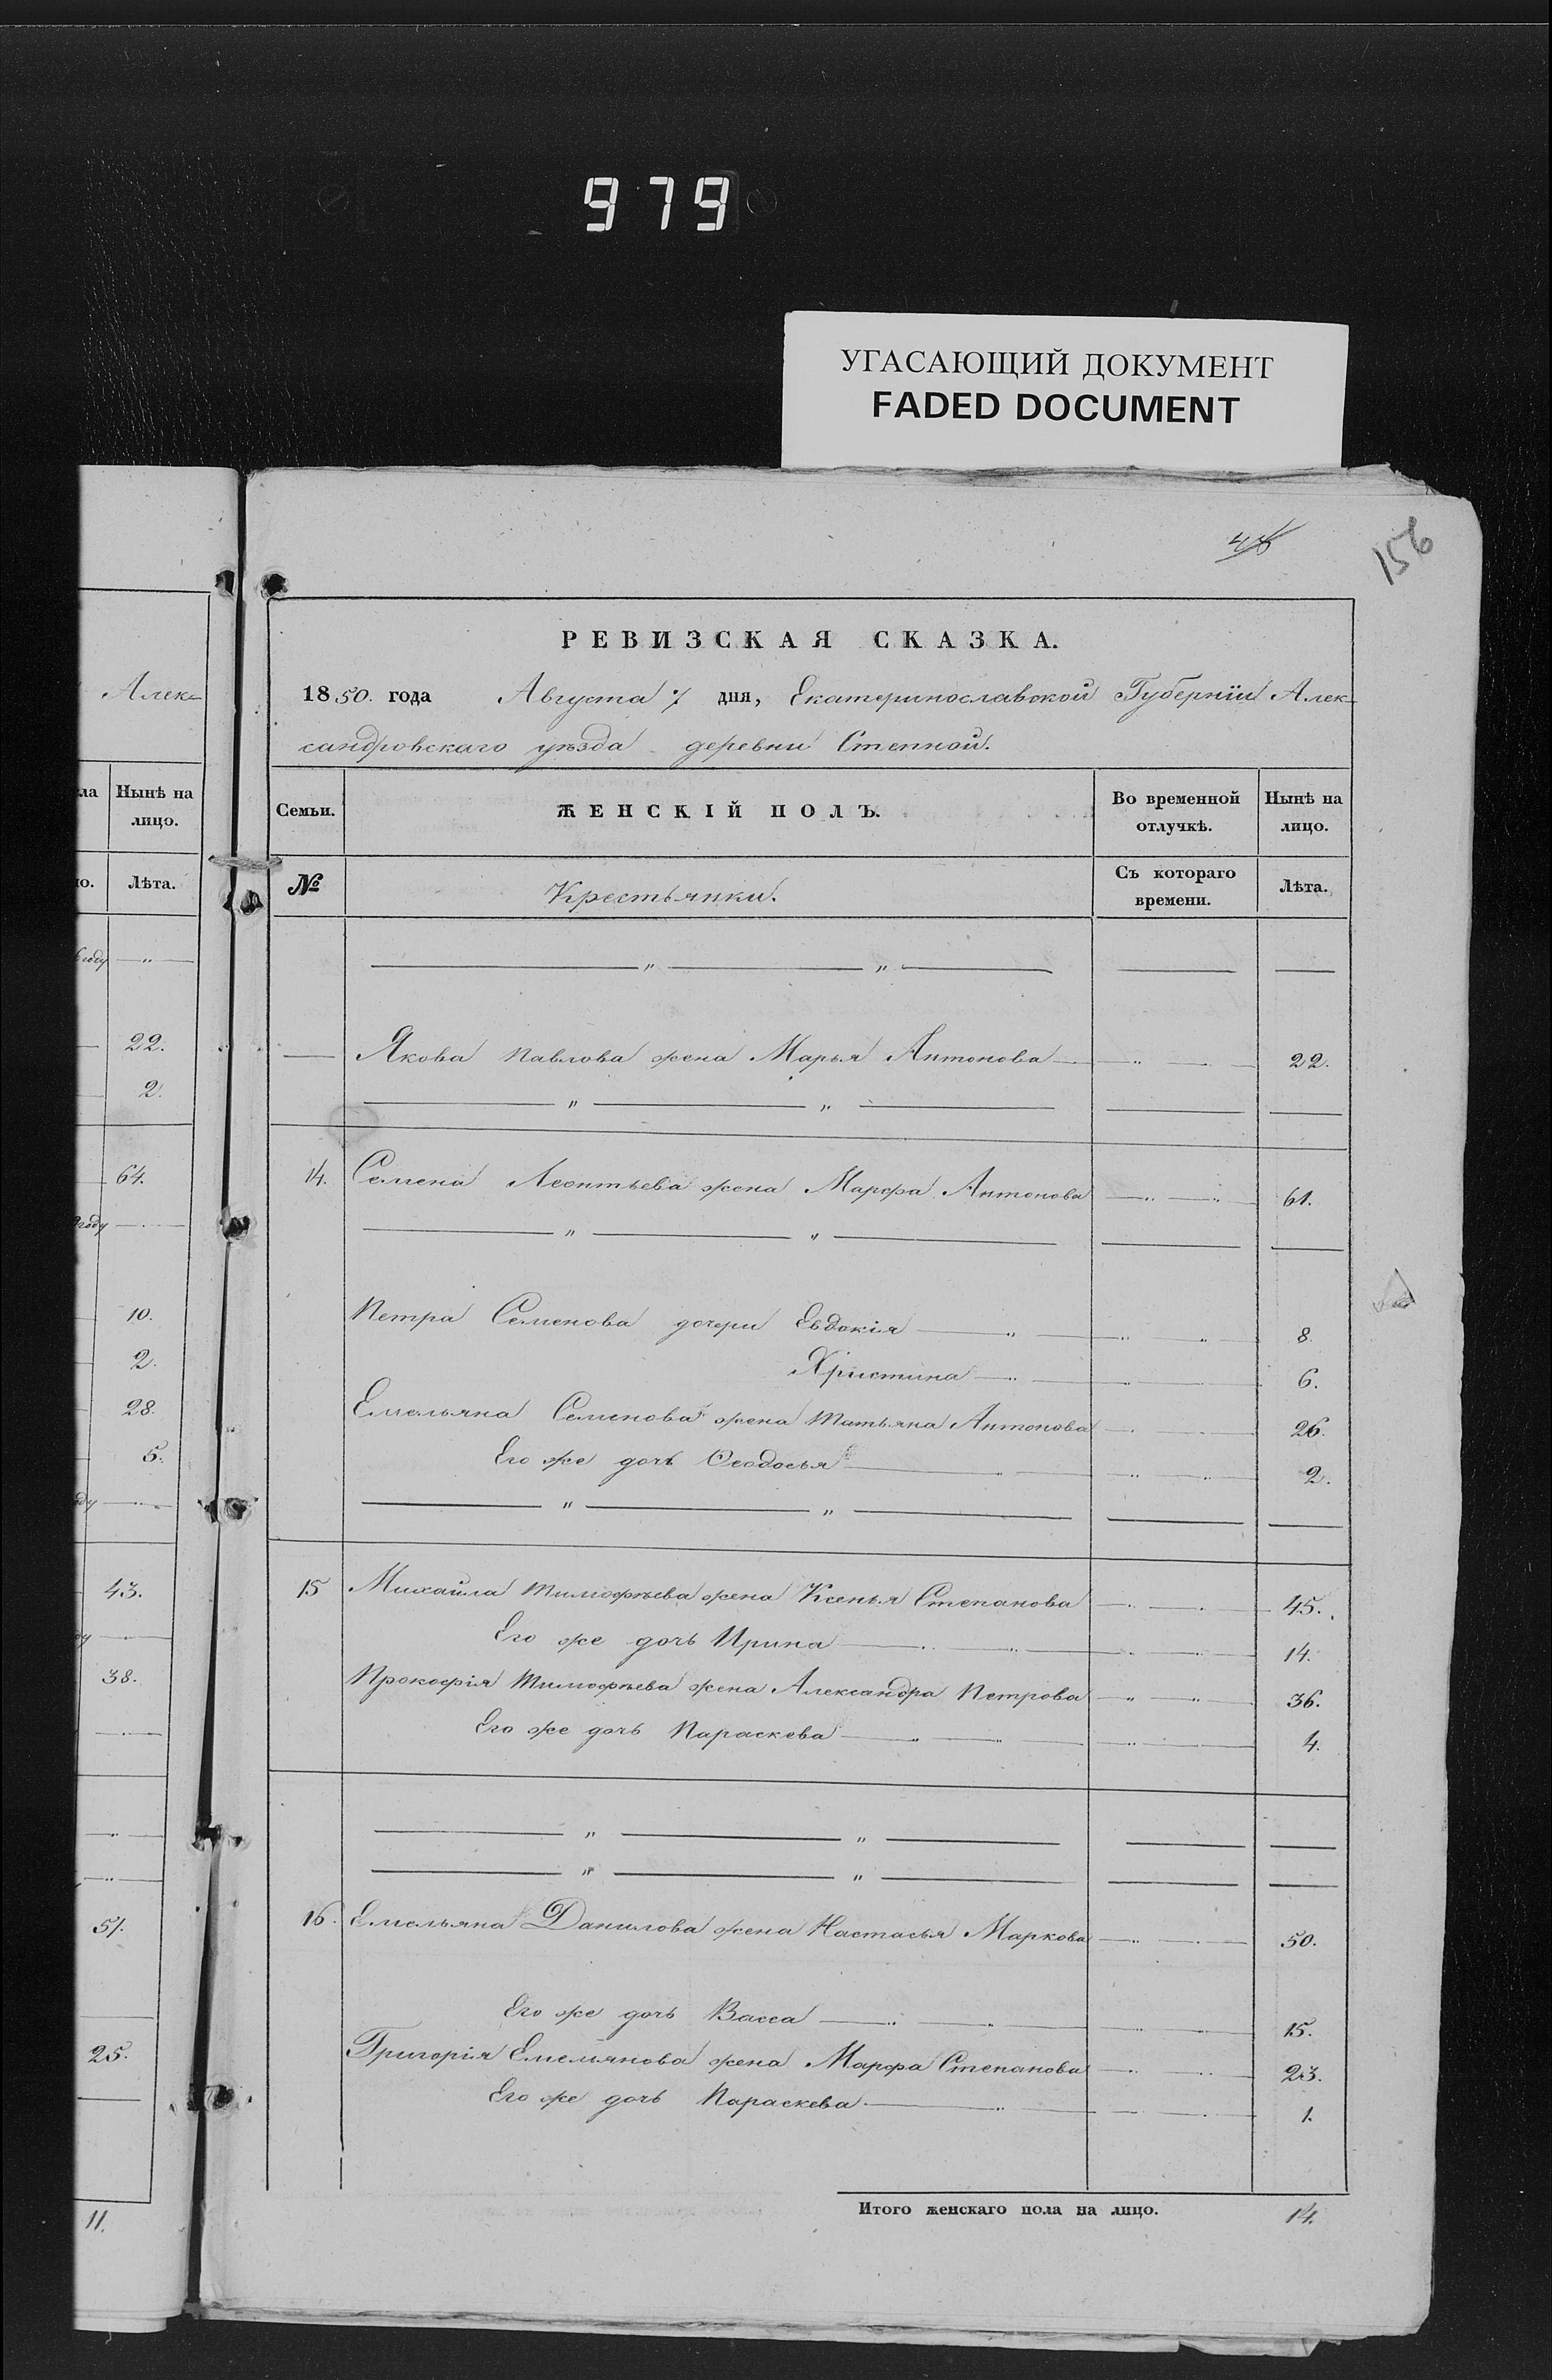 979
УГАСАЮЩИЙ ДОКУМЕНТ
FADED DOCUMENT
156
РЕВИЗСКАЯ СКАЗКА.
1850. года Августа 7 дня, Екатеринославской Губерніи Алек-
сандровскаго уѣзда деревни Степной.
Семьи. ЖЕНСКІЙ ПОЛЪ. Во временной отлучкѣ. Нынѣ на лицо.
№ Крестьянки. Съ котораго времени. Лѣта.
Якова Павлова жена Марья Антонова 22.
14. Семена Леонтьева жена Марфа Антонова 61.
Петра Семенова дочери Евдокія 8.
Христина 6.
Емельяна Семенова жена Татьяна Антонова 26.
Его же дочь Ѳеодосья 2.
15 Михайла Тимофѣева жена Ксенья Степанова 45.
Его же дочь Ирина 14.
Прокофія Тимофѣева жена Александра Петрова 36.
Его же дочь Параскева 4.
16. Емельяна Данилова жена Настасья Маркова 50.
Его же дочь Васса 15.
Григорія Емельянова жена Марфа Степанова 23.
Его же дочь Параскева 1.
Итого женскаго пола на лицо. 14.
Алек-
ла Нынѣ на
лицо.
Лѣта.
году
22.
2.
64.
году
10.
2.
28.
5.
43.
38.
51.
25.
11.